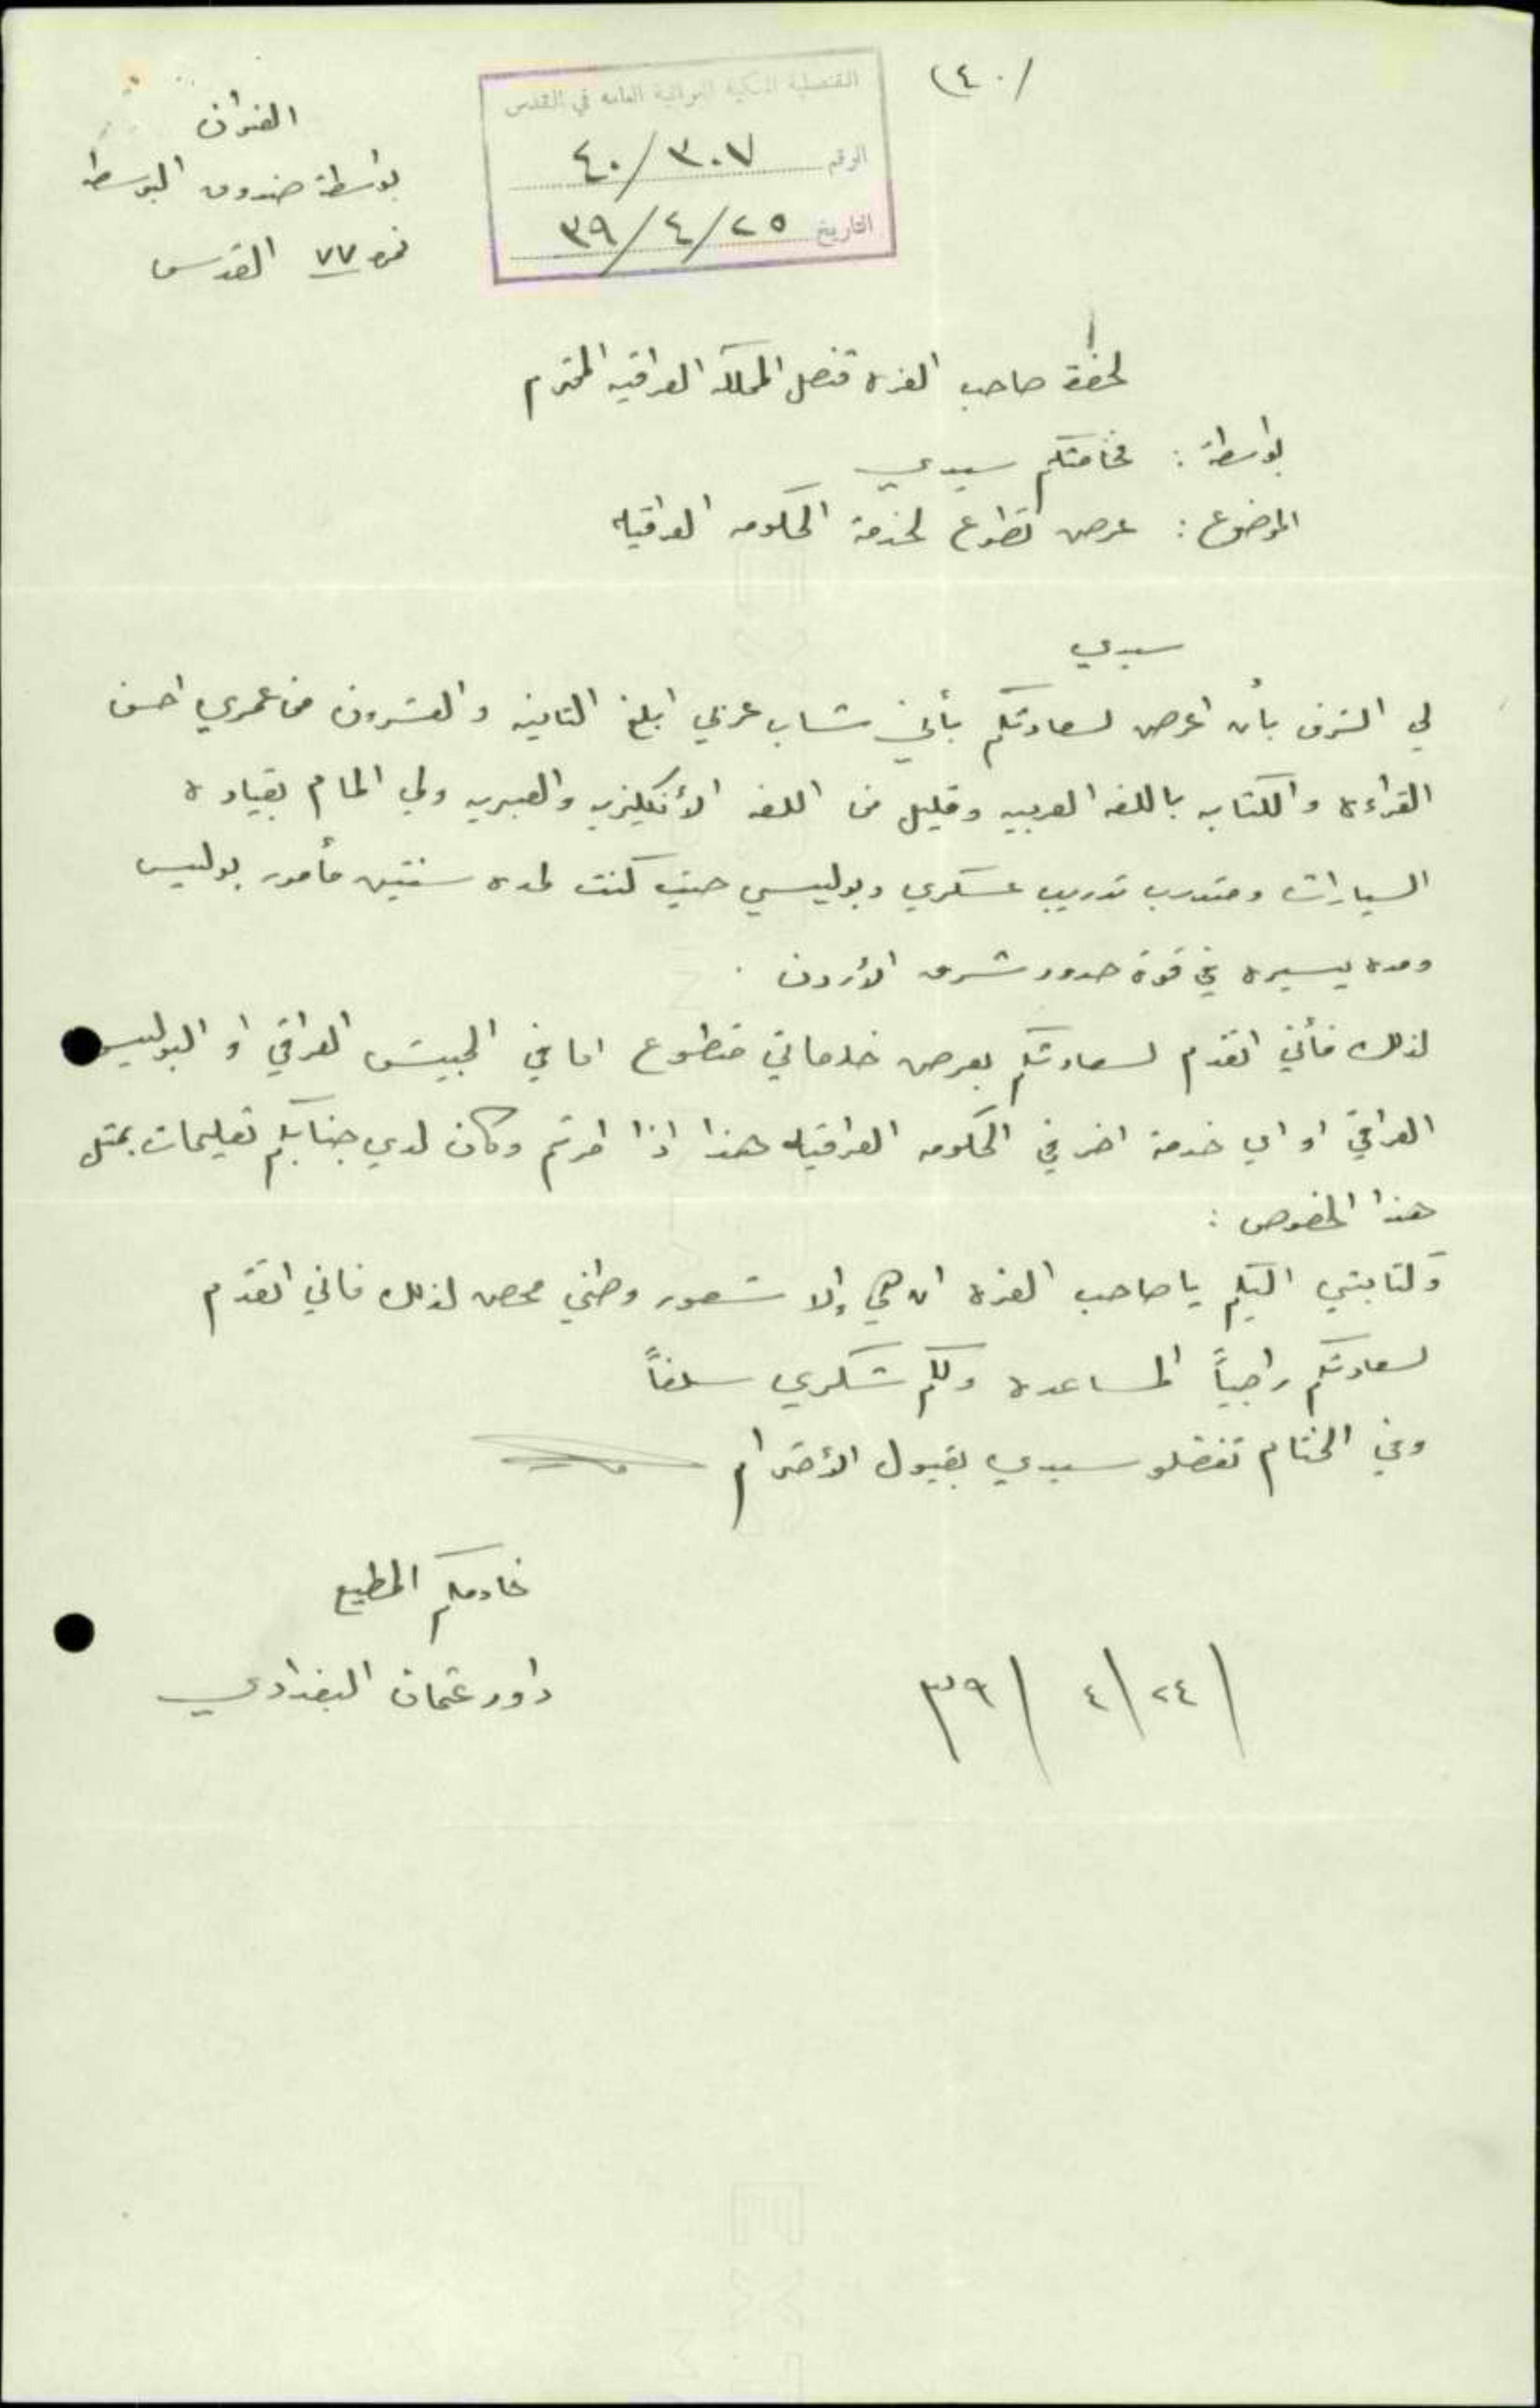 ٤٠/
القنصلية الملكية العراقية العامة في القدس
الرقم ٤٠/٣٠٧
التاريخ ٣٩/٤/٢٥
العنوان
بواسطة صندوق البوسطه
نمره ٧٧ القدس
لحضرة صاحب العزه قنصل المملكه العراقيه المحترم
بواسطة : فخامتكم سيدي
الموضوع : عرض تطوع لخدمة الحكومه العراقيه
سيدي
لي الشرف بأن اعرض لسعادتكم بأني شاب عربي ابلغ الثانيه والعشرون من عمري احسن
القراءه والكتابه باللغه العربيه وقليل من اللغه الأنكليزيه والعبريه ولي المام بقياده
السيارات ومتدرب تدريب عسكري وبوليسي حيث كنت لمده سنتين مأمور بوليس
ومده يسيره في قوة حدود شرق الأردن .
لذلك فأني اتقدم لسعادتكم بعرض خدماتي متطوع اما في الجيش العراقي او البوليس
العراقي او اي خدمة اخر في الحكومه العراقيه هذا اذا امرتم وكان لدي جنابكم تعليمات بمثل
هذا الخصوص :
وكتابتي اليكم يا صاحب العزه ان هي إلا شعور وطني محض لذلك فاني اتقدم
لسعادتكم راجياً المساعده ولكم شكري سلفاً
وفي الختام تفضلو سيدي بقبول الأحترام
خادمكم المطيع
داود عثمان البغدادي
٣٩/٤/٢٤